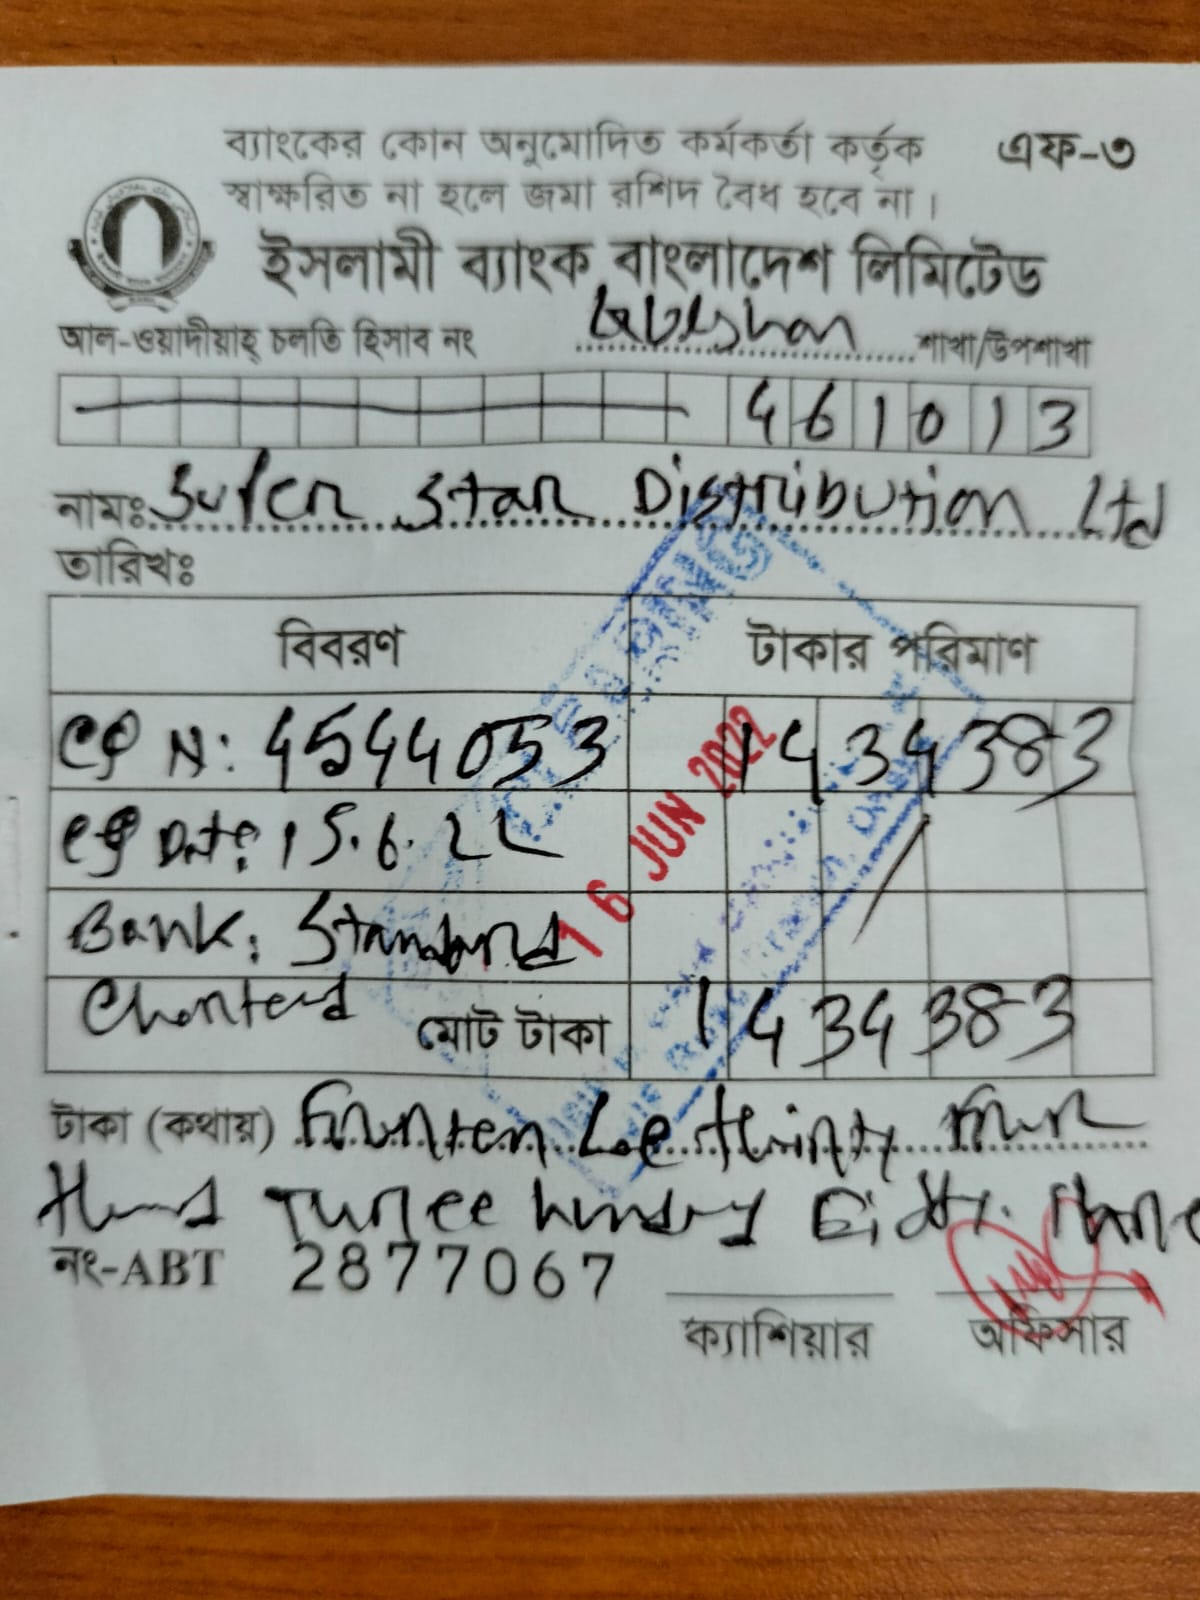 ব্যাংকের কোন অনুমোদিত কর্মকর্তা কর্তৃক এফ-৩
স্বাক্ষরিত না হলে জমা রশিদ বৈধ হবে না।
ইসলামী ব্যাংক বাংলাদেশ লিমিটেড
আল-ওয়াদীয়াহ্ চলতি হিসাব নং Gulshan শাখা/উপশাখা
461013
নামঃ Super Star Distribution Ltd
তারিখঃ
বিবরণ টাকার পরিমাণ
CQ N: 4544053 1434383
CQ Date: 15.6.22
Bank: Standard
16 JUN 2022
CLEARING
Charterd মোট টাকা 1434383
টাকা (কথায়) Fourteen Lac thirty four
Three Eighty three
নং-ABT 2877067
ক্যাশিয়ার অফিসার